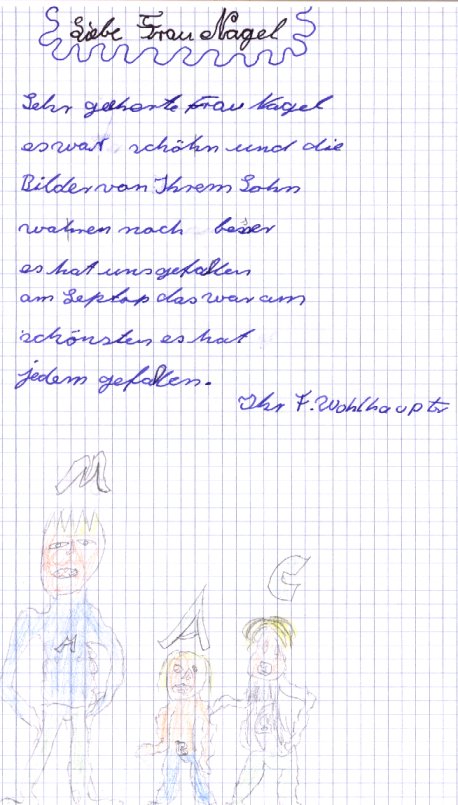 Liebe Frau Nagel
Sehr gehorte Frau Nagel
es war schöhn und die
Bilder von Ihrem Sohn
wahren noch besser
es hat uns gefallen
am Leptop das war am
schönsten es hat
jedem gefallen.
Ihr F. Wohlhaupter
M
A
A
C